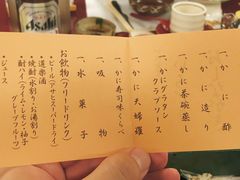 Asahi
一、かに酢
一、かに造り
一、かに茶碗蒸し
一、かにグラタン
クラブソース
一、かに天婦羅
一、かに寿司味くらべ
一、吸物
一、水菓子
お飲物(フリードリンク)
・ビール(アサヒスーパードライ)
・道楽酒
・焼酎(水割り・お湯割り)
・酎ハイ(ライム・レモン・柚子
グレープフルーツ)
・ジュース